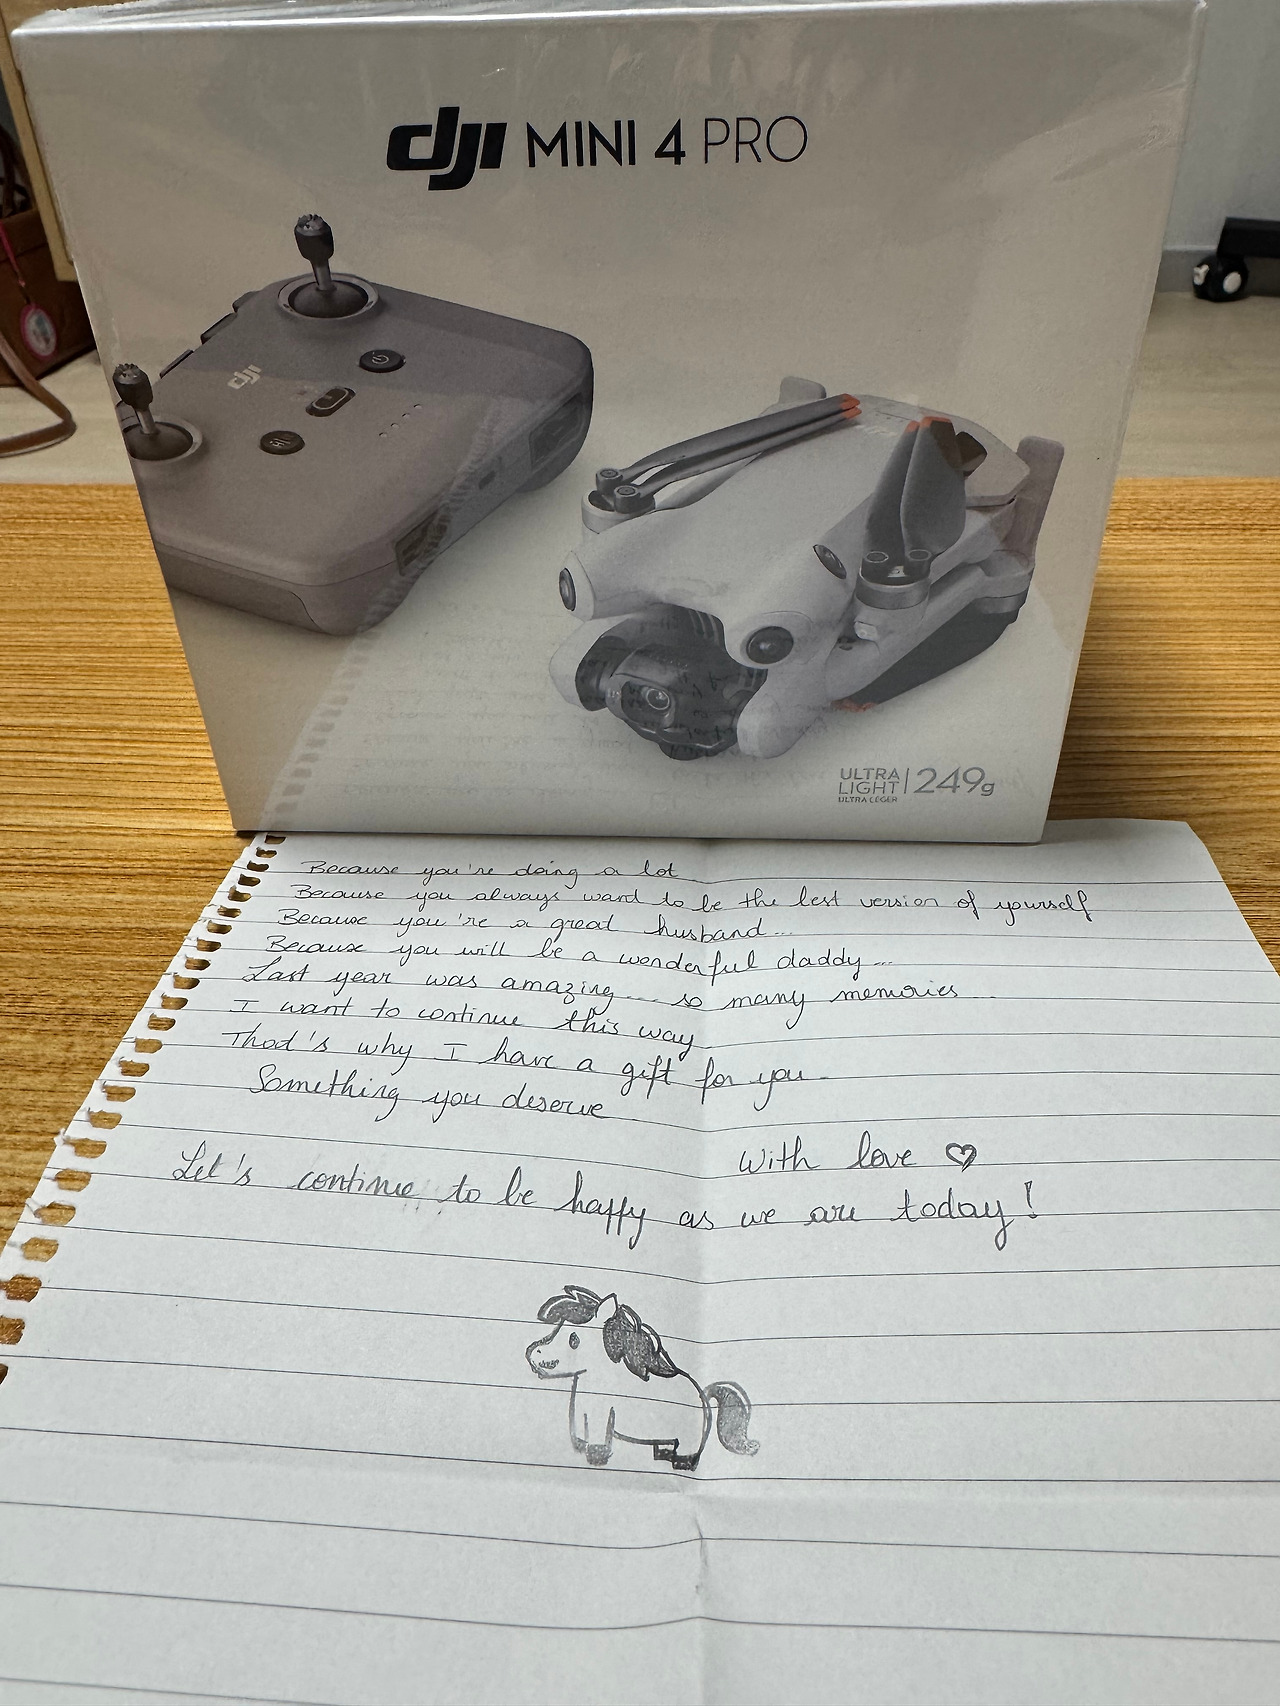 dji MINI 4 PRO
dji
ULTRA
LIGHT | 249g
ULTRA LÉGER
Because you're doing a lot
Because you always want to be the best version of yourself
Because you're a great husband...
Because you will be a wonderful daddy...
Last year was amazing.... so many memories...
I want to continue this way.
That's why I have a gift for you.
Something you deserve
With love ♡
Let's continue to be happy as we are today!